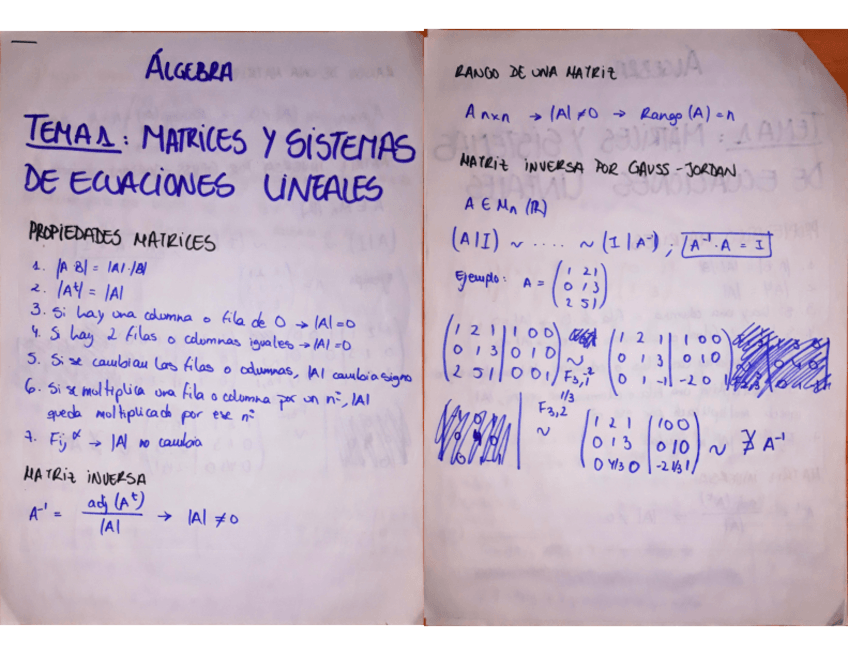 ÁLGEBRA
TEMA 1: MATRICES Y SISTEMAS
DE ECUACIONES LINEALES
PROPIEDADES MATRICES
1. |A·B| = |A|·|B|
2. |Aᵗ| = |A|
3. Si hay una columna o fila de 0 → |A|=0
4. Si hay 2 filas o columnas iguales → |A|=0
5. Si se cambian las filas o columnas, |A| cambia signo
6. Si se multiplica una fila o columna por un nº, |A|
queda multiplicado por ese nº
7. Fij^α → |A| no cambia
MATRIZ INVERSA
A⁻¹ = adj(Aᵗ) / |A| → |A| ≠ 0
RANGO DE UNA MATRIZ
A n×n → |A| ≠ 0 → Rango (A) = n
MATRIZ INVERSA POR GAUSS-JORDAN
A ∈ Mn (R)
(A|I) ~ .... ~ (I|A⁻¹), A⁻¹·A = I
Ejemplo: A = (1 2 1
0 1 3
2 5 1)
(1 2 1 | 1 0 0
0 1 3 | 0 1 0
2 5 1 | 0 0 1)
~ F3,1^-2
(1 2 1 | 1 0 0
0 1 3 | 0 1 0
0 1 -1 | -2 0 1)
F3,2^1/3
~
(1 2 1 | 1 0 0
0 1 3 | 0 1 0
0 4/3 0 | -2 1/3 1)
~ ∄ A⁻¹